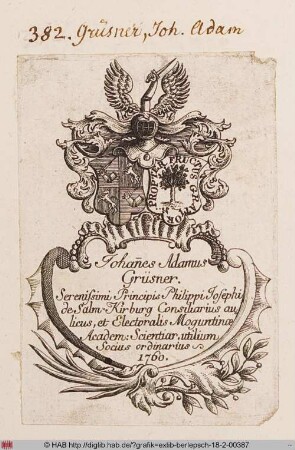 382. Grüsner, Joh. Adam
OB PROPRIVM FRUCTUS GE
Johañes Adamus
Grüsner.
Serenissimi Principis Philippi Josephi
de Salm-Kirburg Consiliarius au
licus, et Electoralis Moguntinæ
Academ: Scientiar. utilium
Socius ordinarius
1760.
© HAB http://diglib.hab.de/?grafik=exlib-berlepsch-18-2-00387